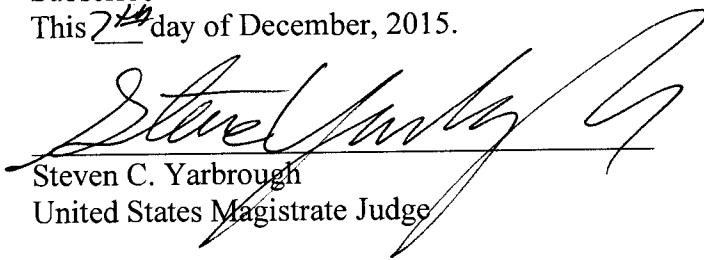 This 7th day of December, 2015.
Steven C. Yarbrough
United States Magistrate Judge